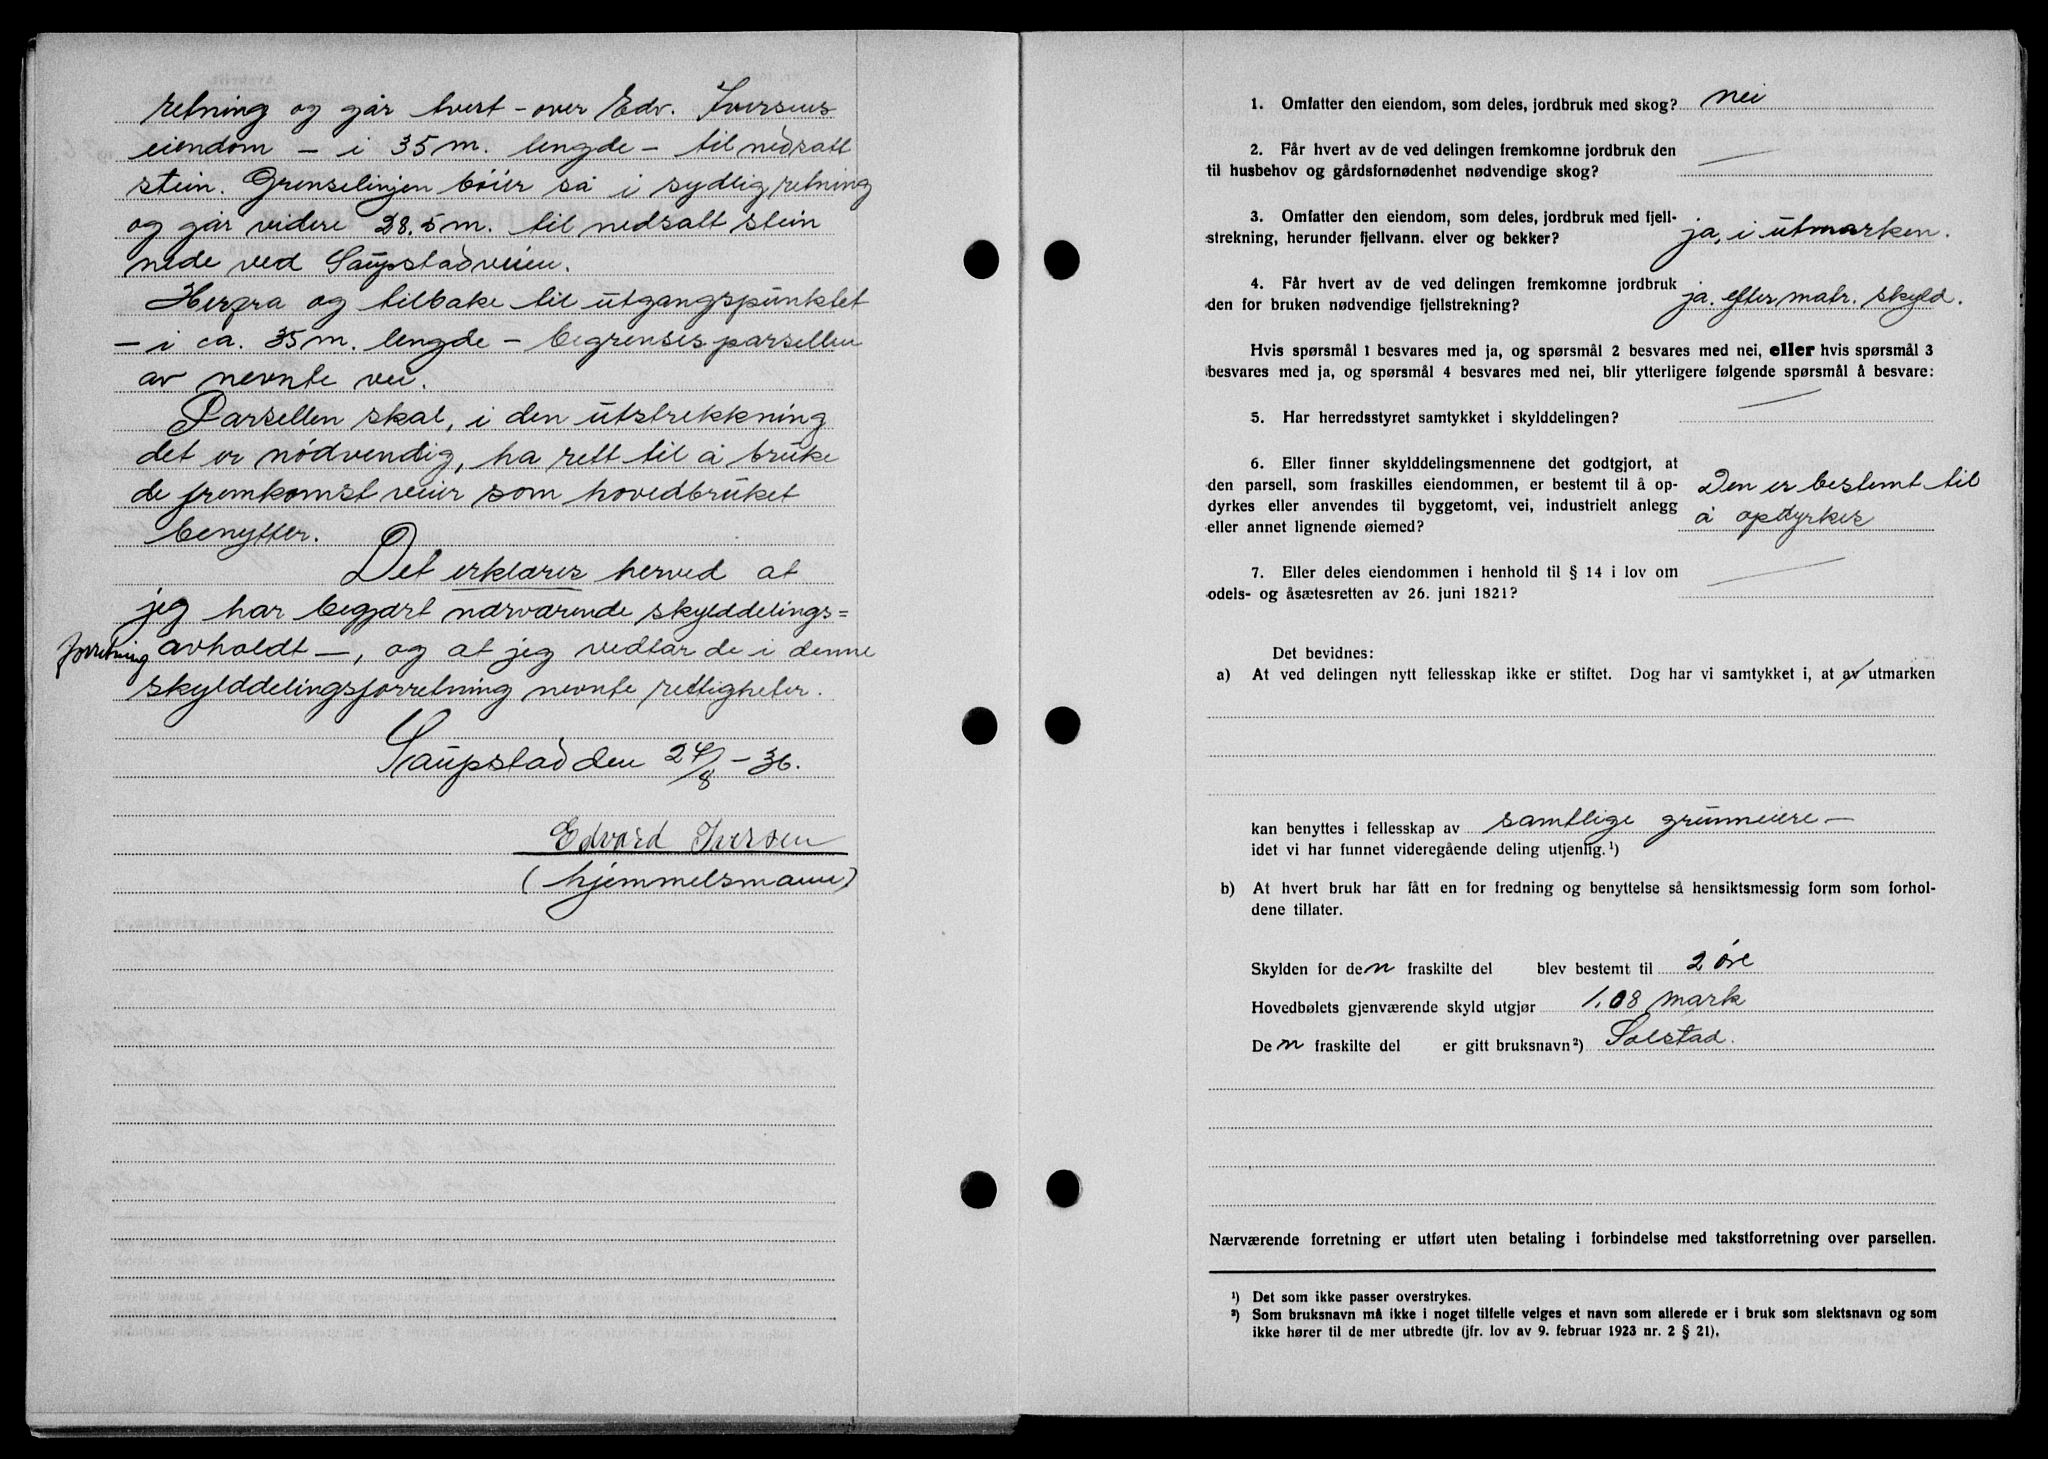 retning og går tvert - over Edv. Iversens
eiendom - i 35 m. lengde - til nedsatt
stein. Grenselinjen bøier så i sydlig retning
og går videre 28.5 m. til nedsatt stein
nede ved Saupstadveien.
Herfra og tilbake til utgangspunktet
- i ca. 35 m. lengde - begrenses parsellen
av nevnte vei.
Parsellen skal, i den utstrekkning
det er nødvendig, ha rett til å bruke
de fremkomstveier som hovedbruket
benytter.
Det erklæres herved at
jeg har begjært nærværende skylddelings=
forretning avholdt -, og at jeg vedtar de i denne
skylddelingsforretning nevnte rettigheter.
Saupstad den 24/8 - 36.
Edvard Iversen
(hjemmelsmann)
1. Omfatter den eiendom, som deles, jordbruk med skog? nei
2. Får hvert av de ved delingen fremkomne jordbruk den
til husbehov og gårdsfornødenhet nødvendige skog? —
3. Omfatter den eiendom, som deles, jordbruk med fjell-
strekning, herunder fjellvann. elver og bekker? ja, i utmarken.
4. Får hvert av de ved delingen fremkomne jordbruk
den for bruken nødvendige fjellstrekning? ja. efter matr. skyld.
Hvis spørsmål 1 besvares med ja, og spørsmål 2 besvares med nei, eller hvis spørsmål 3
besvares med ja, og spørsmål 4 besvares med nei, blir ytterligere følgende spørsmål å besvare:
5. Har herredsstyret samtykket i skylddelingen? —
6. Eller finner skylddelingsmennene det godtgjort, at
den parsell, som fraskilles eiendommen, er bestemt til å op- Den er bestemt til
dyrkes eller anvendes til byggetomt, vei, industrielt anlegg å opdyrkes
eller annet lignende øiemed?
7. Eller deles eiendommen i henhold til § 14 i lov om
odels- og åsætesretten av 26. juni 1821? —
Det bevidnes:
a) At ved delingen nytt fellesskap ikke er stiftet. Dog har vi samtykket i, at av utmarken
kan benyttes i fellesskap av samtlige grunneiere -
idet vi har funnet videregående deling utjenlig.¹)
b) At hvert bruk har fått en for fredning og benyttelse så hensiktsmessig form som forhol-
dene tillater.
Skylden for den fraskilte del blev bestemt til 2 øre
Hovedbølets gjenværende skyld utgjør 1,08 mark
Den fraskilte del er gitt bruksnavn²) Solstad.
Nærværende forretning er utført uten betaling i forbindelse med takstforretning over parsellen.
¹) Det som ikke passer overstrykes.
²) Som bruksnavn må ikke i noget tilfelle velges et navn som allerede er i bruk som slektsnavn og som
ikke hører til de mer utbredte (jfr. lov av 9. februar 1923 nr. 2 § 21).